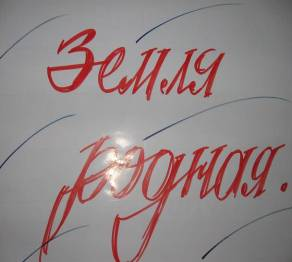 Земля
родная.